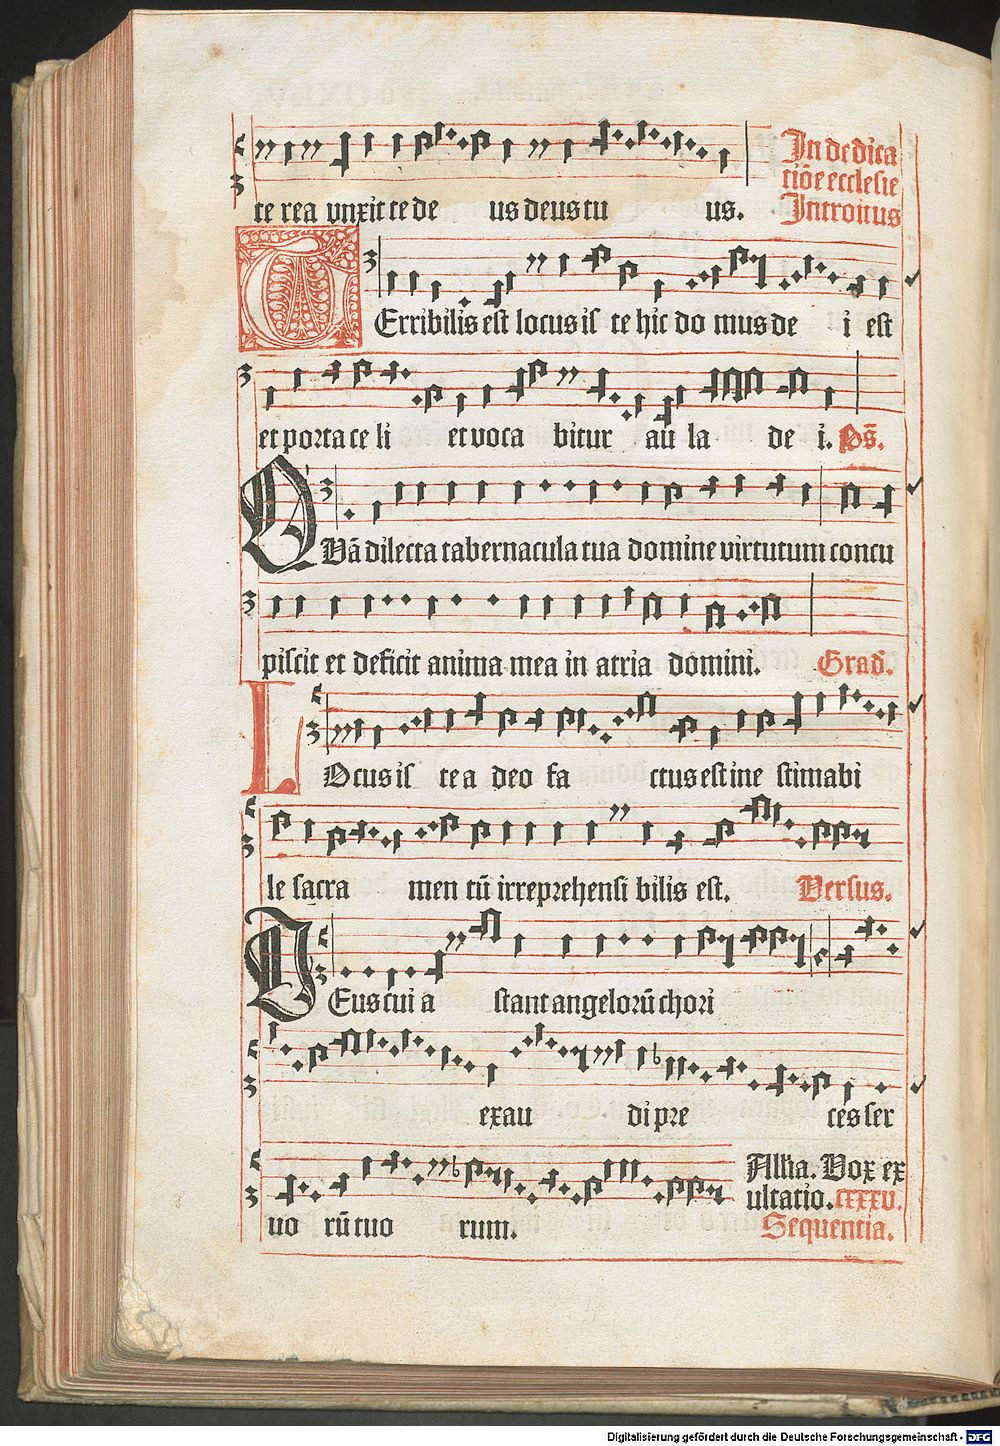 te rea vnxit te de us deus tu us.
In dedica
tiõe ecclesie
Introitus
TErribilis est locus is te hic do mus de i est
et porta ce li et voca bitur au la de i. Ps̃.
QUã dilecta tabernacula tua domine virtutum concu
piscit et deficit anima mea in atria domini. Grad̃.
LOcus is te a deo fa ctus est ine stimabi
le sacra men tũ irreprehensi bilis est. Versus.
DEus cui a stant angelorũ chori
exau di pre ces ser
uo rũ tuo rum.
Allĩa. Vox ex
ultatio. cxxxv.
Sequentia.
Digitalisierung gefördert durch die Deutsche Forschungsgemeinschaft - DFG